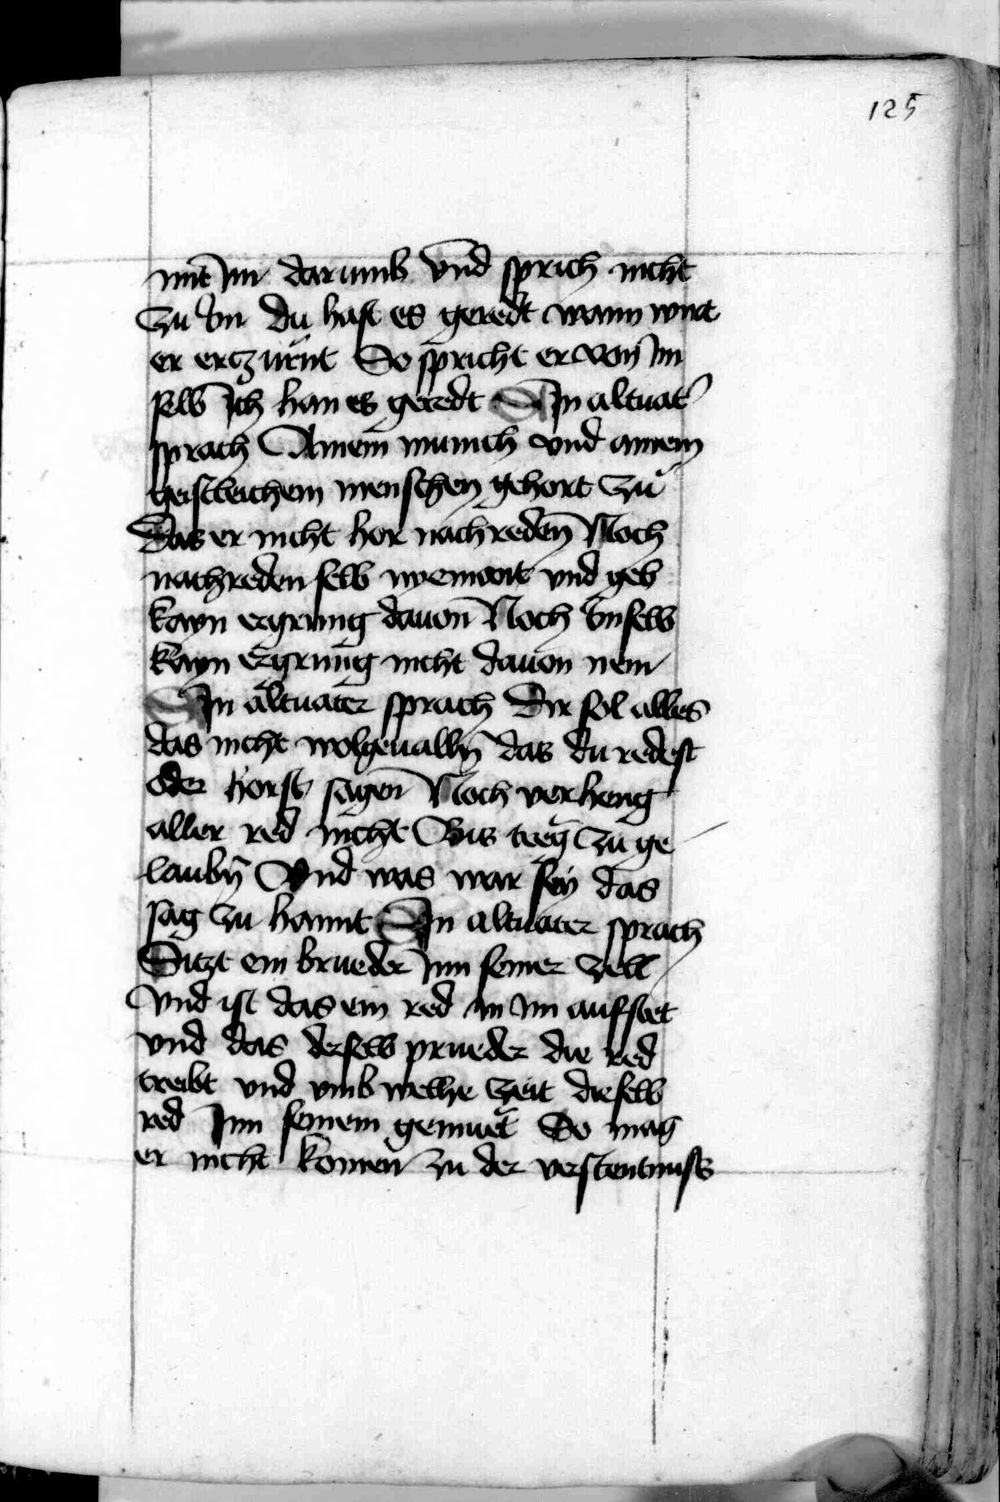 125
mit Im darumb vnd sprich nicht
zu Im du hast es geredt wann wirt
er erczürnt So spricht er von Im
selb Ich han es geredt Ain altuat
sprach Ainem münich vnd ainem
geistleichem menschen gehort zu
Das er nicht hor nachreden Noch
nachreden selb nyemont vnd geb
kayn ergrung dauon Noch Im selb
kayn ergrung nicht dauon nem
Ain altuater sprach Dir sol alles
das nicht wolgeuallñ das du redest
oder horst sagen Noch verheng
aller red nicht Bis treg zu ge
laubñ Vnd was war sey das
sag zu hannt Ain altuater sprach
Sitzt ein brueder Inn seiner zell
Vnd ist das ein red in Im aufstet
vnd das derselb prueder die red
treibt vnd vmb welhe zeit dieselb
red Inn seinem gemuet So mag
er nicht komen zu der verstentnuss